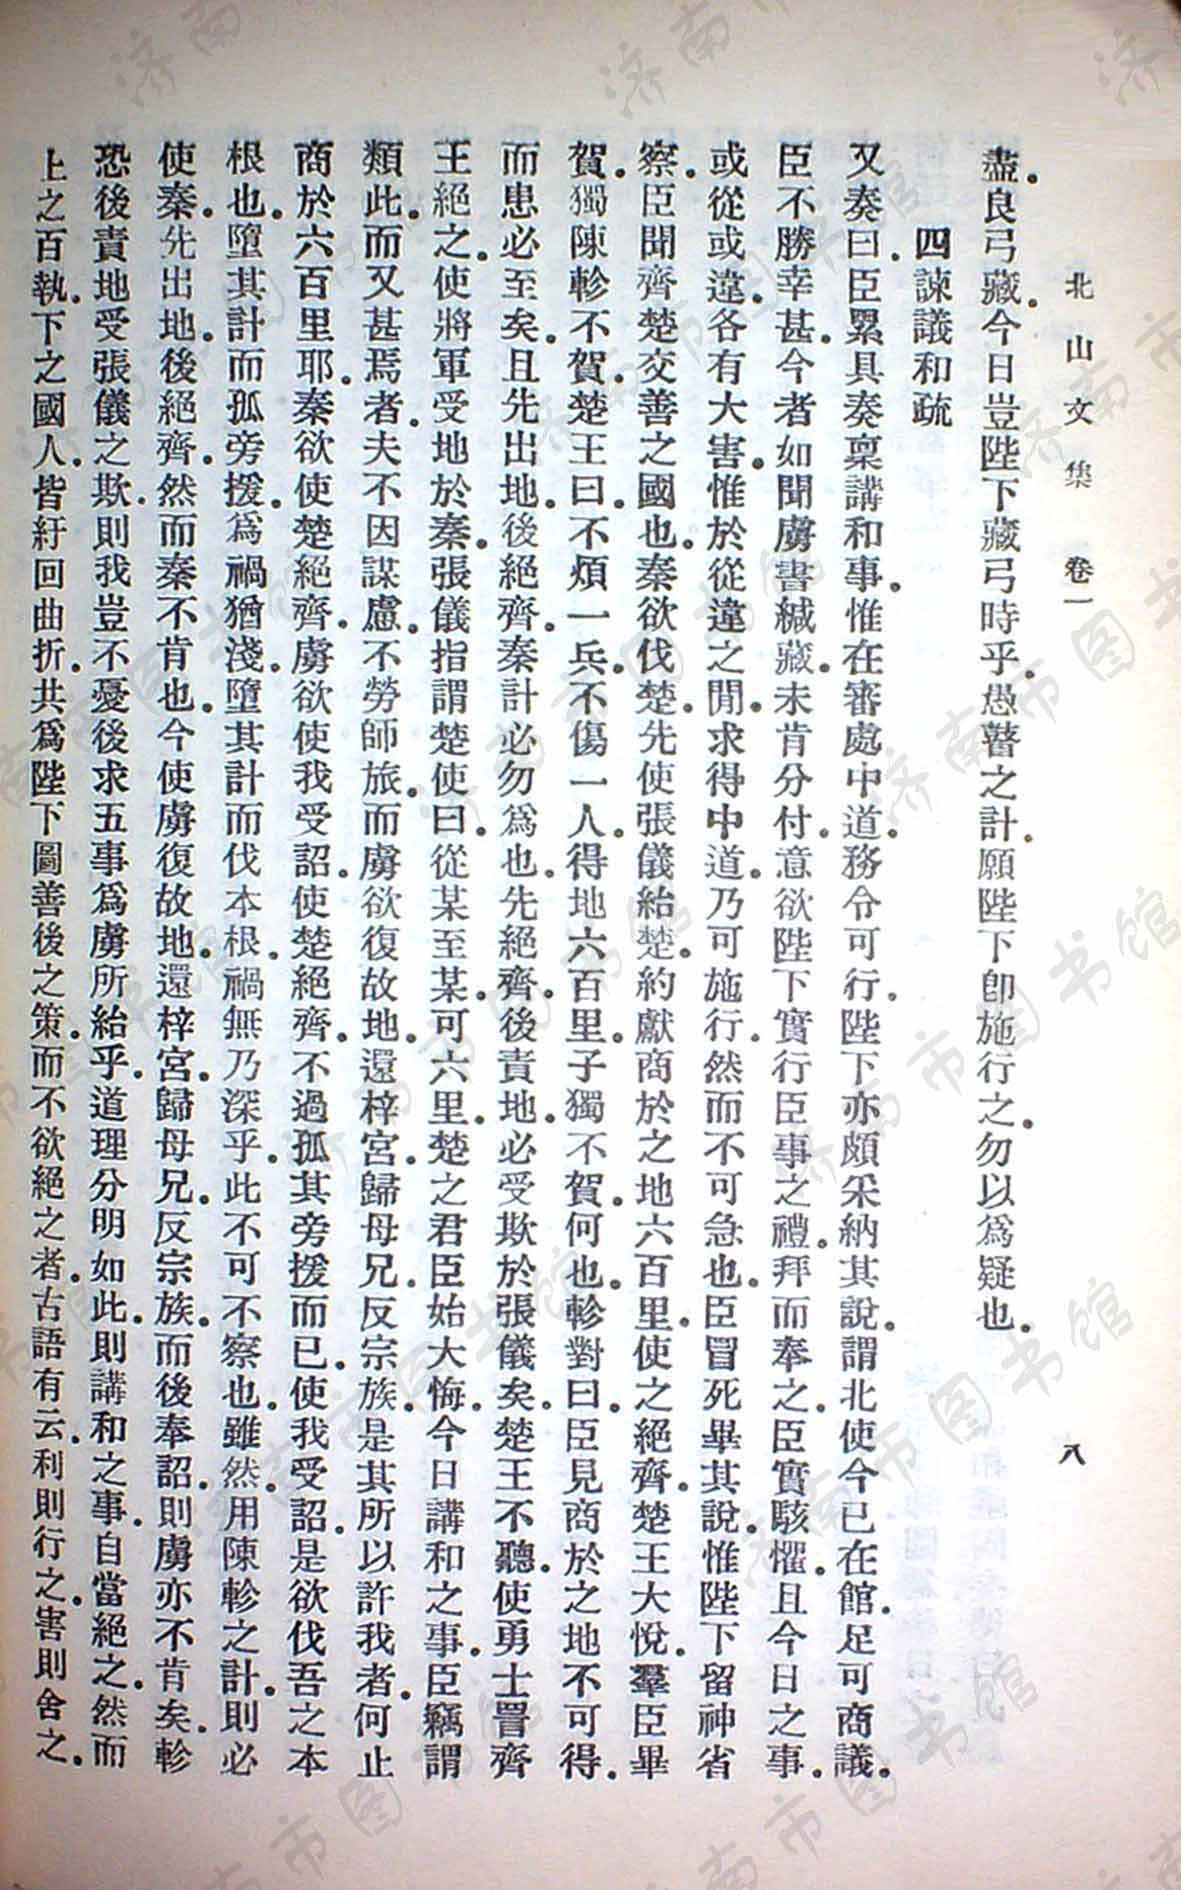 北山文集 卷一 八
盡。良弓藏。今日豈陛下藏弓時乎。愚瞽之計。願陛下卽施行之。勿以爲疑也。
四諫議和疏
又奏曰。臣累具奏稟講和事。惟在審處中道。務令可行。陛下亦頗采納其說。謂北使今已在館。足可商議。
臣不勝幸甚。今者如聞虜書緘藏。未肯分付。意欲陛下實行臣事之禮。拜而奉之。臣實駭懼。且今日之事。
或從或違。各有大害。惟於從違之閒。求得中道。乃可施行。然而不可急也。臣冒死畢其說。惟陛下留神省
察。臣聞齊楚交善之國也。秦欲伐楚。先使張儀紿楚。約獻商於之地六百里。使之絕齊。楚王大悅。羣臣畢
賀。獨陳軫不賀。楚王曰。不煩一兵。不傷一人。得地六百里。子獨不賀。何也。軫對曰。臣見商於之地不可得。
而患必至矣。且先出地。後絕齊。秦計必勿爲也。先絕齊。後責地。必受欺於張儀矣。楚王不聽。使勇士詈齊
王絕之。使將軍受地於秦。張儀指謂楚使曰。從某至某。可六里。楚之君臣始大悔。今日講和之事。臣竊謂
類此。而又甚焉者。夫不因謀慮。不勞師旅。而虜欲復故地。還梓宮。歸母兄。反宗族。是其所以許我者。何止
商於六百里耶。秦欲使楚絕齊。虜欲使我受詔。使楚絕齊。不過孤其旁援而已。使我受詔。是欲伐吾之本
根也。墮其計而孤旁援。爲禍猶淺。墮其計而伐本根。禍無乃深乎。此不可不察也。雖然。用陳軫之計。則必
使秦先出地。後絕齊。然而秦不肯也。今使虜復故地。還梓宮。歸母兄。反宗族。而後奉詔。則虜亦不肯矣。軫
恐後責地受張儀之欺。則我豈不憂後求五事爲虜所紿乎。道理分明如此。則講和之事。自當絕之。然而
上之百執。下之國人。皆紆回曲折。共爲陛下圖善後之策。而不欲絕之者。古語有云。利則行之。害則舍之。
济南市图书馆